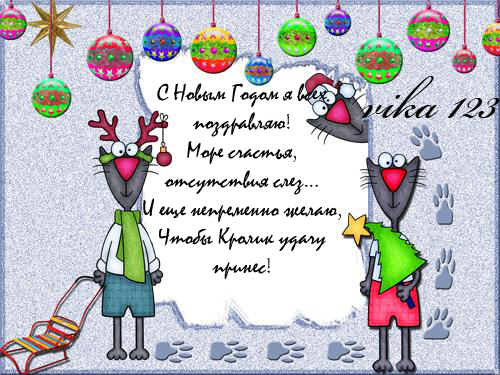 С Новым Годом я всех
поздравляю!
Море счастья,
отсутствия слез...
И еще непременно желаю,
Чтобы Кролик удачу
принес!
vika 123